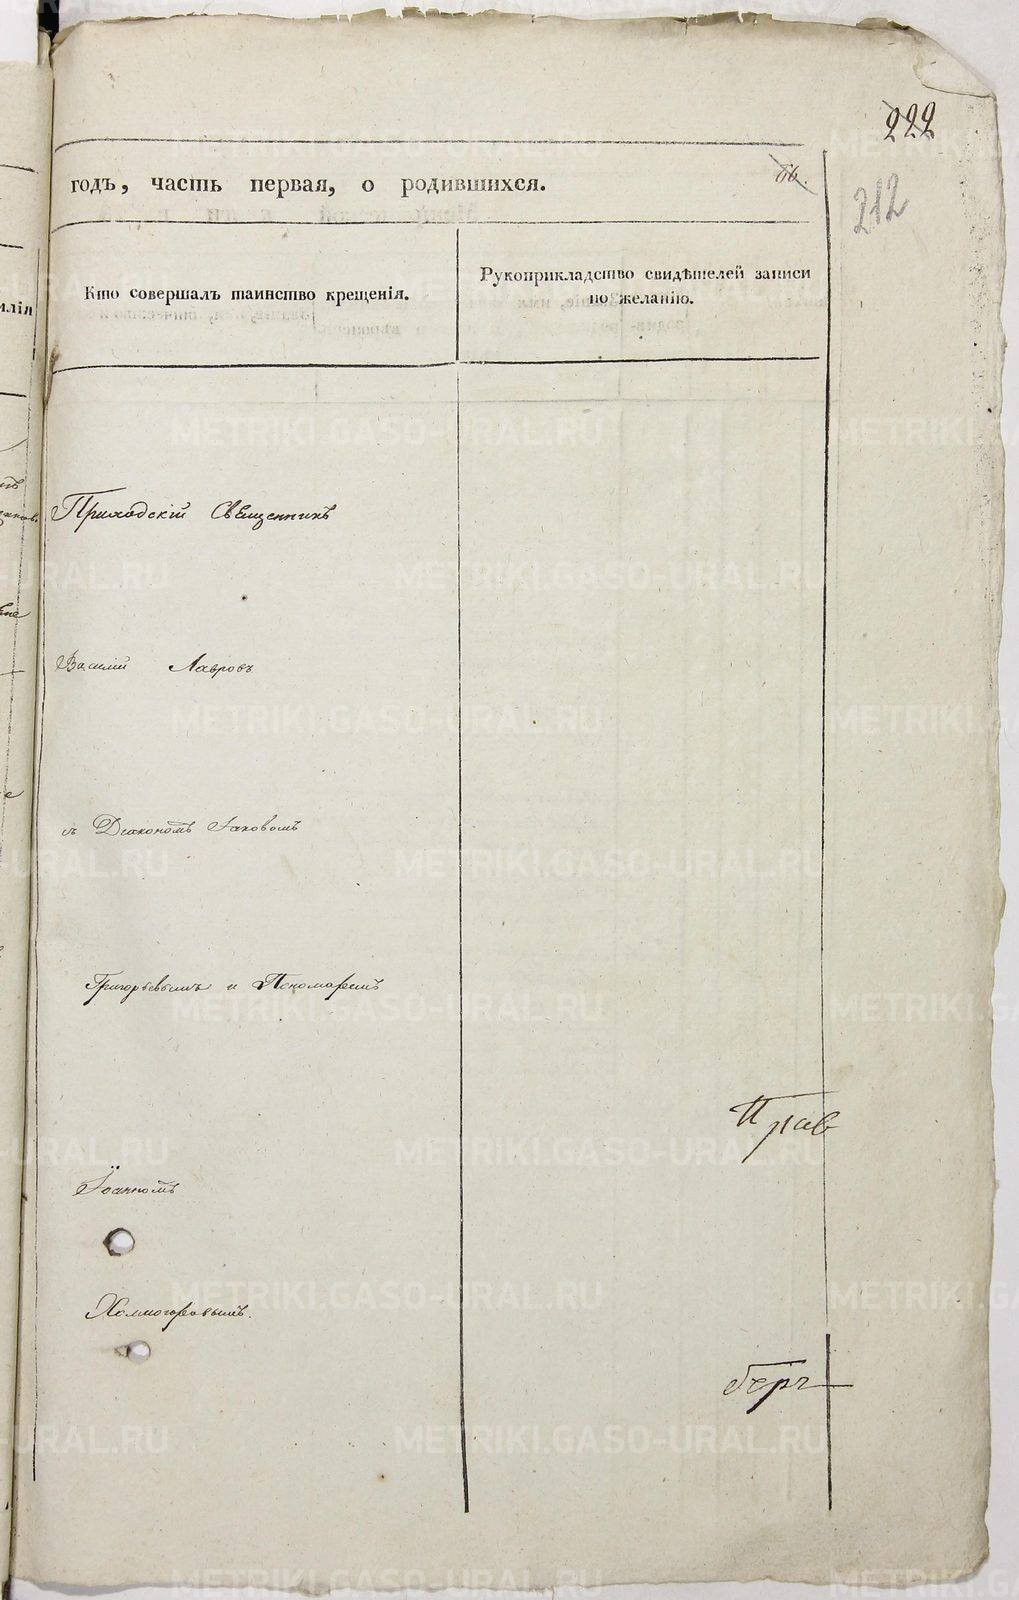 222
годъ, часть первая, о родившихся.
66.
212
Кто совершалъ таинство крещенія.
Рукоприкладство свидѣтелей записи
по желанію.
илія
Приходскій Священникъ
Василій Лавровъ
съ Діакономъ Іаковомъ
Григорьевымъ и Пономаремъ
Іоанномъ
Холмогоровымъ.
METRIKI.GASO-URAL.RU